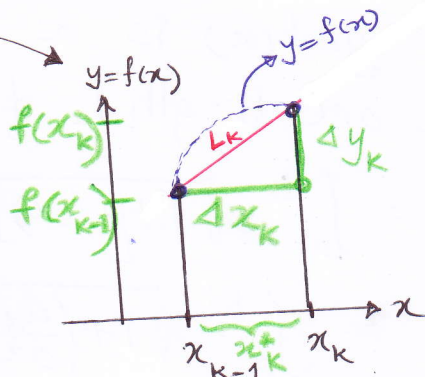 y=f(x)
y=f(x)
f(x_k)
L_k
Δy_k
f(x_{k-1})
Δx_k
x
x_{k-1}
x*_k
x_k